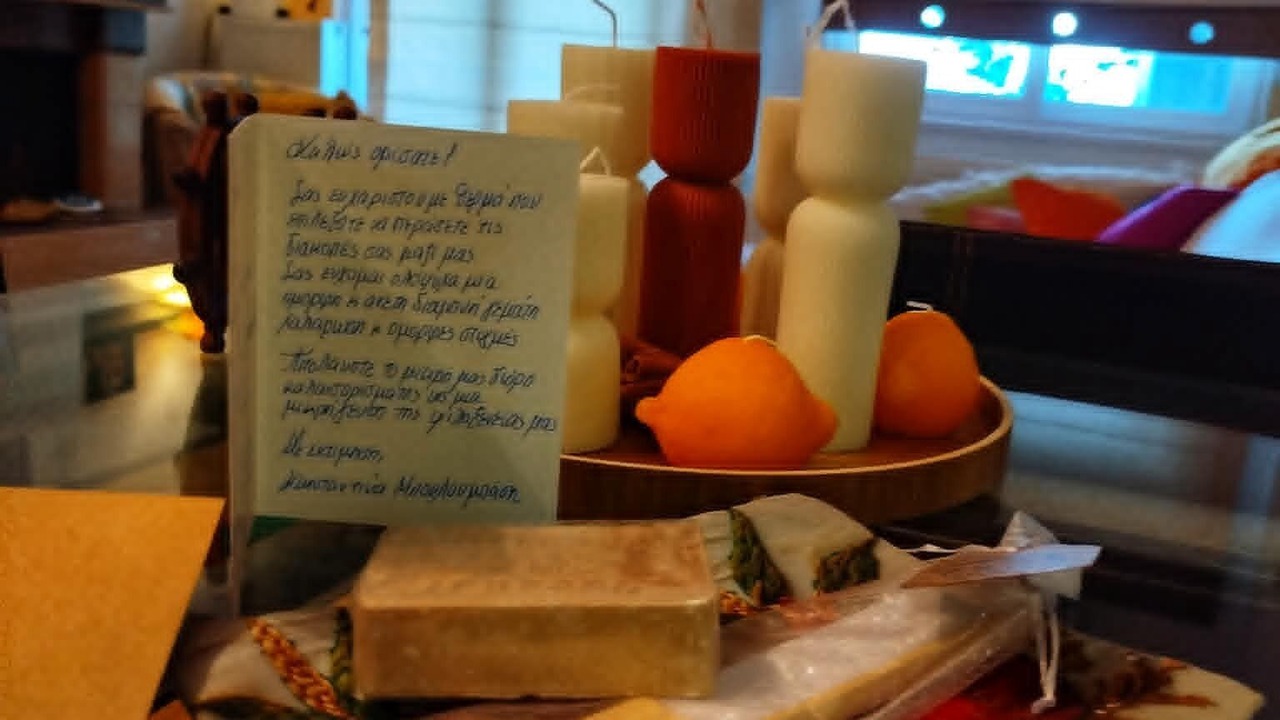 Καλώς ορίσατε!
Σας ευχαριστούμε θερμά που
επιλέξατε να περάσετε τις
διακοπές σας μαζί μας
Σας εύχομαι ολόψυχα μια
όμορφη κ άνετη διαμονή γεμάτη
χαλάρωση κ όμορφες στιγμές
Απολαύστε το μικρό μας δώρο
καλωσορίσματος ως μια
μικρή γεύση της φιλοξενίας μας
Με εκτίμηση,
Κωνσταντίνα